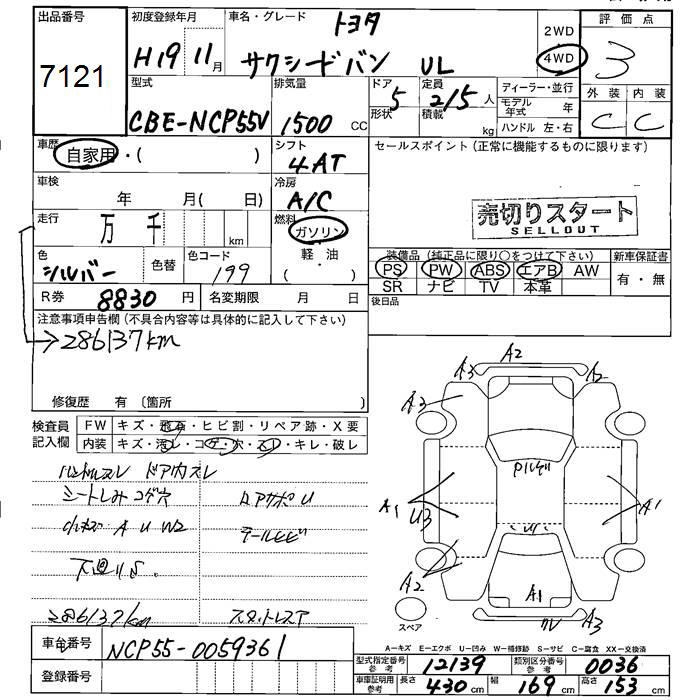 出品番号 初度登録年月 車名・グレード トヨタ 2WD 評価点
7121 H19 11月 サクシードバン UL 4WD 3
型式 排気量 ドア 5 定員 2/5人 ディーラー・並行 外装 内装
CBE-NCP55V 1500 CC 形状 積載 kg モデル年式 年 C C
ハンドル 左・右
車歴 自家用・( ) シフト 4AT セールスポイント (正常に機能するものに限ります)
車検 年 月(日) 冷房 A/C
走行 万 千 km 燃料 ガソリン 売切りスタート
SELLOUT
色 シルバー 色替 色コード 199 軽・油 ( ) 装備品 (純正品に限り○をつけて下さい) 新車保証書
PS PW ABS エアB AW 有・無
SR ナビ TV 本革
R券 8830 円 名変期限 月 日 後日品
注意事項申告欄 (不具合内容等は具体的に記入して下さい)
→286137km
修復歴 有 (箇所 )
検査員記入欄 FW キズ・飛石・ヒビ割・リペア跡・X要
内装 キズ・汚レ・コゲ・穴・スレ・キレ・破レ
ハンドルスレ ドア内スレ
シートしみコゲ穴 ロアサポU
小キズ A U W2 テールヒビ
下廻りS.
286137km スタットレスア
A2
A3 A2
A3
A1 U3 A1
A2
A1
A3
スペア
A-キズ E-エクボ U-凹み W-補修跡 S-サビ C-腐食 XX-交換済
車台番号 NCP55-0059361
登録番号
型式指定番号 参考 12139 類別区分番号 参考 0036
車庫証明用 参考 長さ 430 cm 幅 169 cm 高さ 153 cm